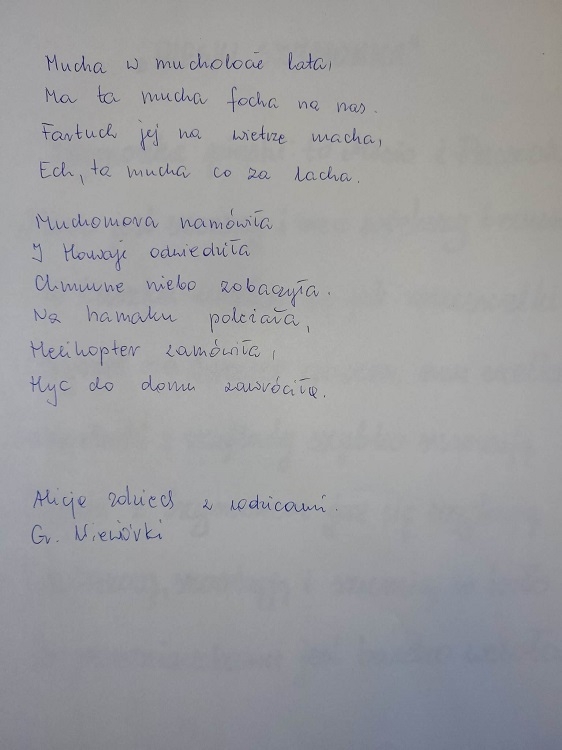 Mucha w mucholocie lata,
Ma ta mucha focha na nas.
Fartuch jej na wietrze macha,
Ech, ta mucha co za racha.
Muchomora namówiła
I Hawaje odwiedziła
Chmurne niebo zobaczyła.
Na hamaku poleciała,
Helikopter zamówiła,
Hyc do domu zawróciła.
Alicja z rodzicami.
Gr. Wiewiórki